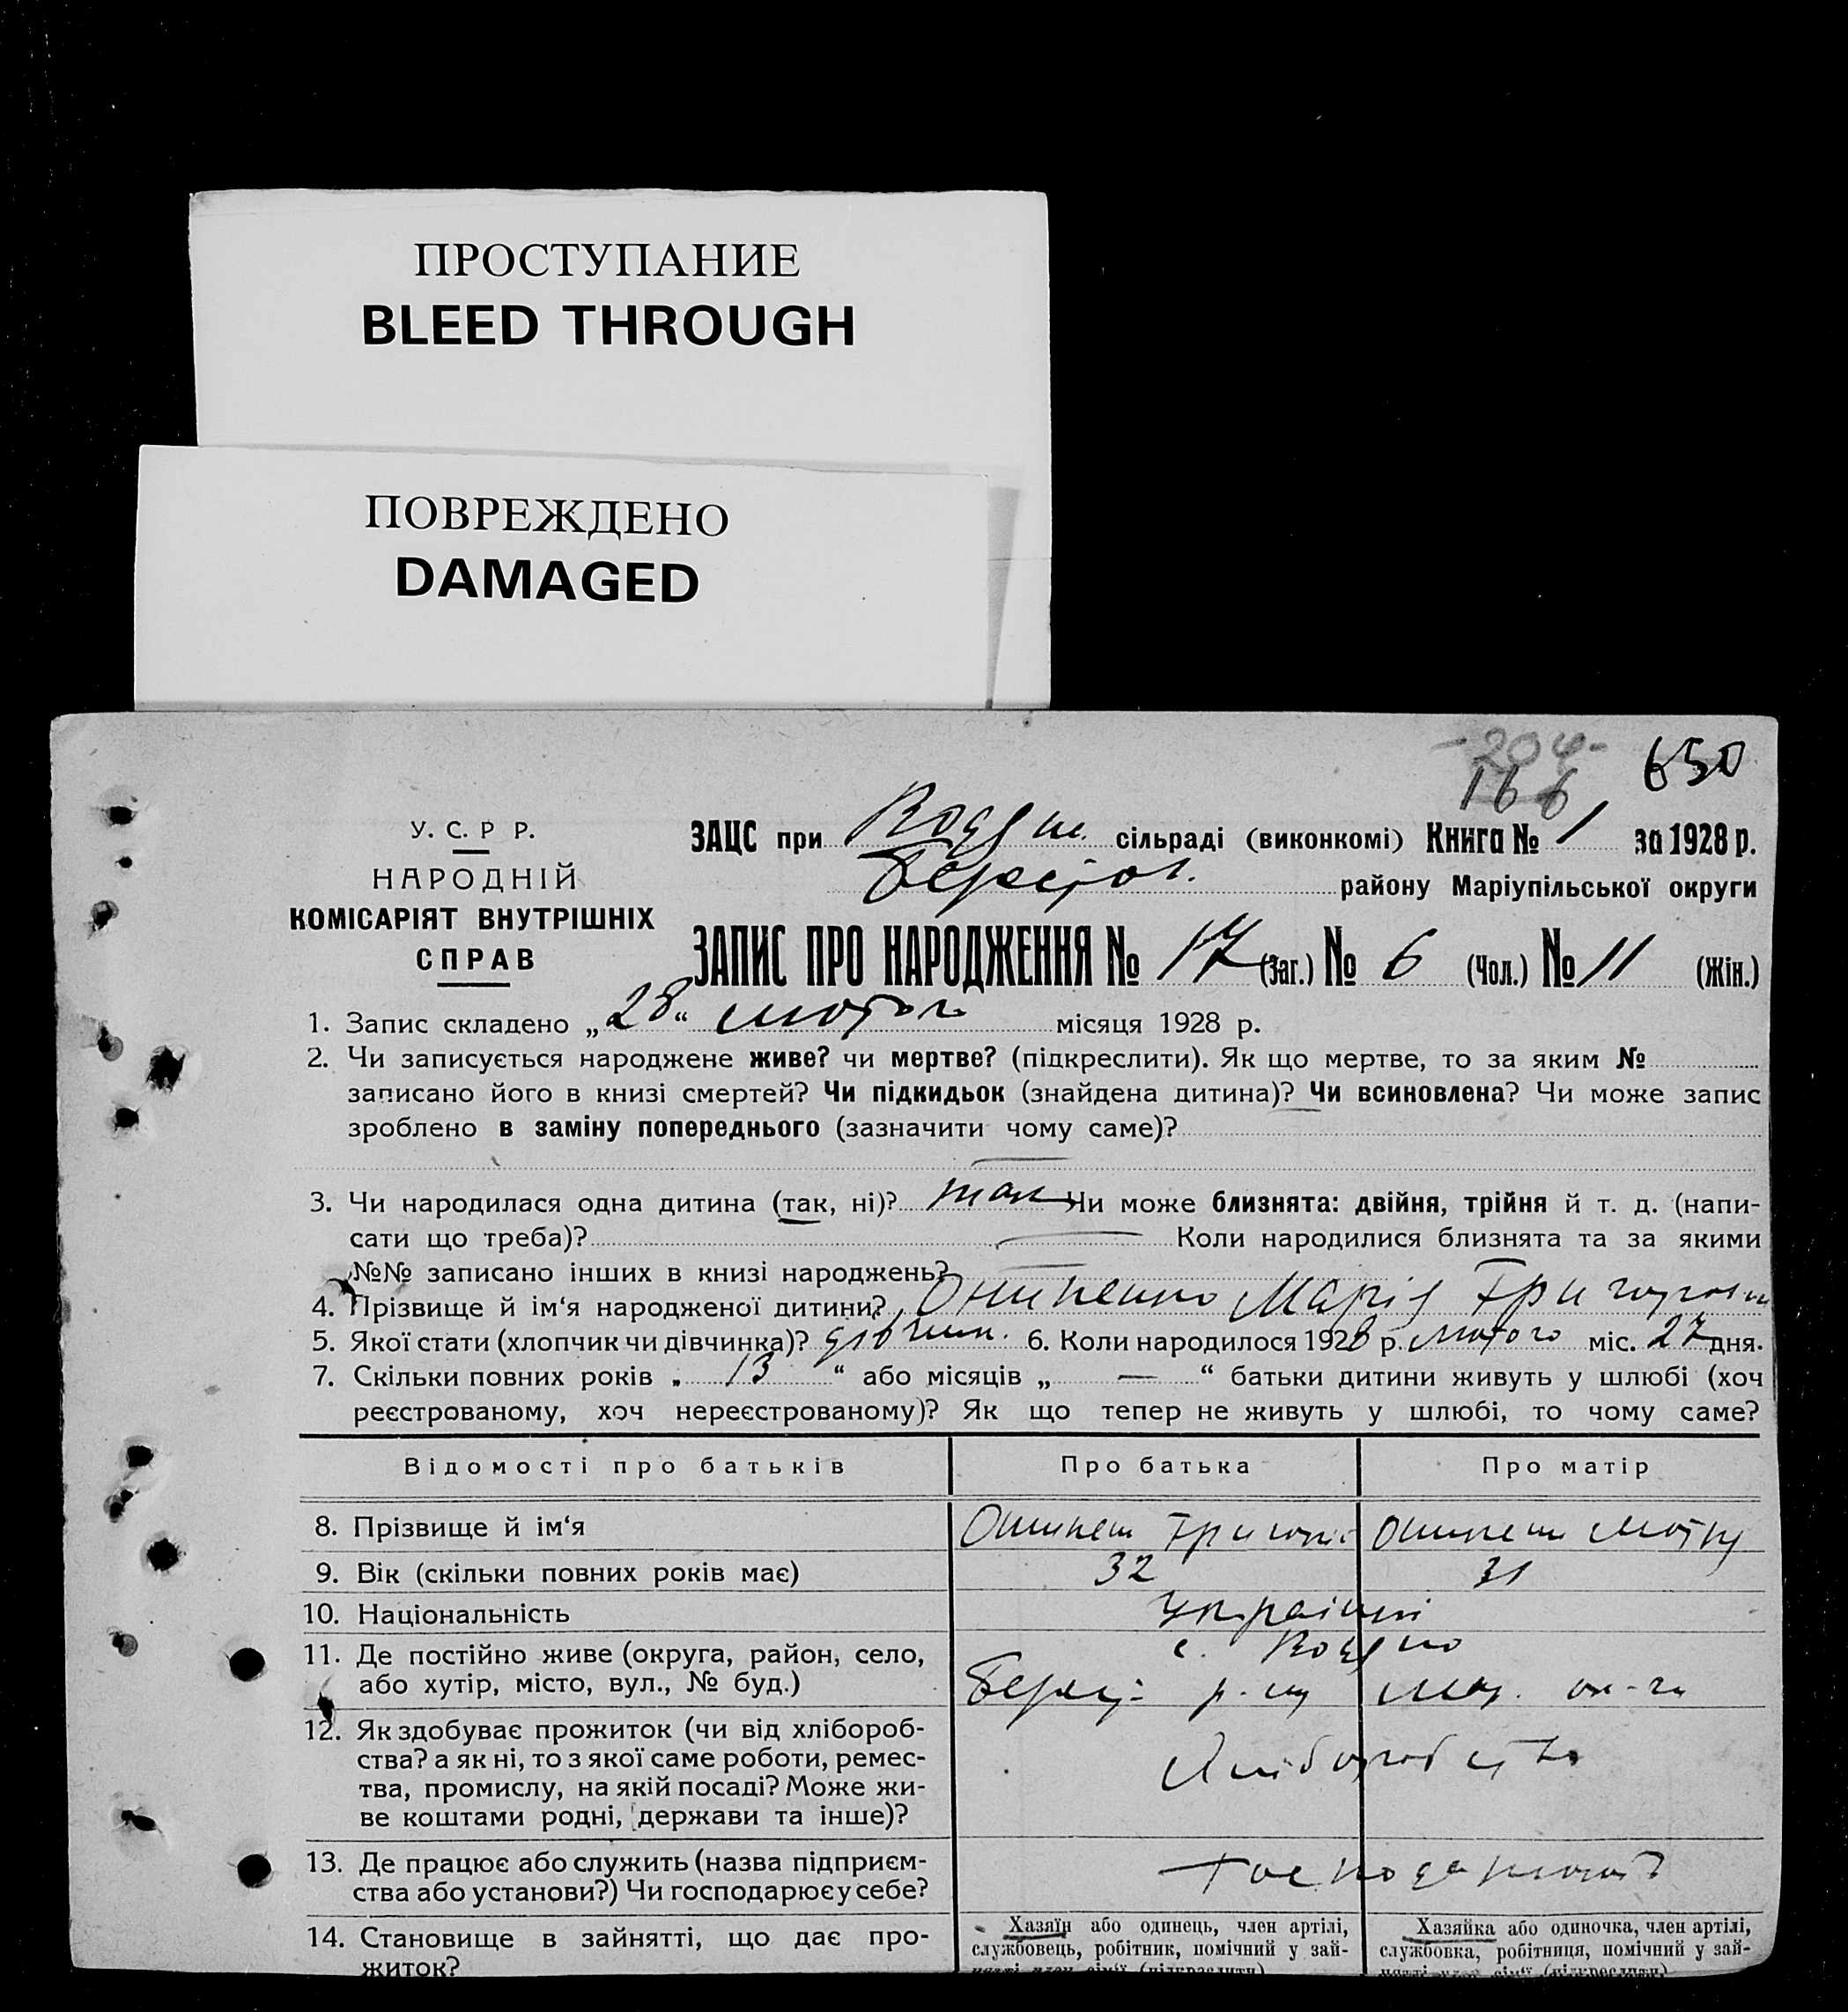 ПРОСТУПАНИЕ
BLEED THROUGH
ПОВРЕЖДЕНО
DAMAGED
-204-
166
650
У. С. Р Р.
НАРОДНІЙ
КОМІСАРІЯТ ВНУТРІШНІХ
СПРАВ
ЗАЦС при сільраді (виконкомі) Книга № 1 за 1928 р.
району Маріупільської округи
ЗАПИС ПРО НАРОДЖЕННЯ № 17 (Заг.) № 6 (Чол.) № 11 (Жін.)
1. Запис складено „28“ лютого місяця 1928 р.
2. Чи записується народжене живе? чи мертве? (підкреслити). Як що мертве, то за яким №
записано його в книзі смертей? Чи підкидьок (знайдена дитина)? Чи всиновлена? Чи може запис
зроблено в заміну попереднього (зазначити чому саме)?
3. Чи народилася одна дитина (так, ні)? так Чи може близнята: двійня, трійня й т. д. (напи-
сати що треба)? Коли народилися близнята та за якими
№№ записано інших в книзі народжень?
4. Прізвище й ім‘я народженої дитини? Марія
5. Якої стати (хлопчик чи дівчинка)? дівчин. 6. Коли народилося 1928 р. лютого міс. 27 дня.
7. Скільки повних років „ 13 “ або місяців „ — “ батьки дитини живуть у шлюбі (хоч
реєстрованому, хоч нереєстрованому)? Як що тепер не живуть у шлюбі, то чому саме?
Відомості про батьків Про батька Про матір
8. Прізвище й ім‘я
9. Вік (скільки повних років має) 32 31
10. Національність Українці
11. Де постійно живе (округа, район, село,
або хутір, місто, вул., № буд.)
12. Як здобуває прожиток (чи від хлібороб-
ства? а як ні, то з якої саме роботи, ремес-
тва, промислу, на якій посаді? Може жи-
ве коштами родні, держави та інше)?
Хліборобство
13. Де працює або служить (назва підприєм-
ства або установи?) Чи господарює у себе?
14. Становище в зайнятті, що дає про-
житок?
Хазяїн або одинець, член артілі,
службовець, робітник, помічний у зай-
нятті член сім‘ї (підкреслити)
Хазяйка або одиночка, член артілі,
службовка, робітниця, помічний у зай-
нятті член сім‘ї (підкреслити)